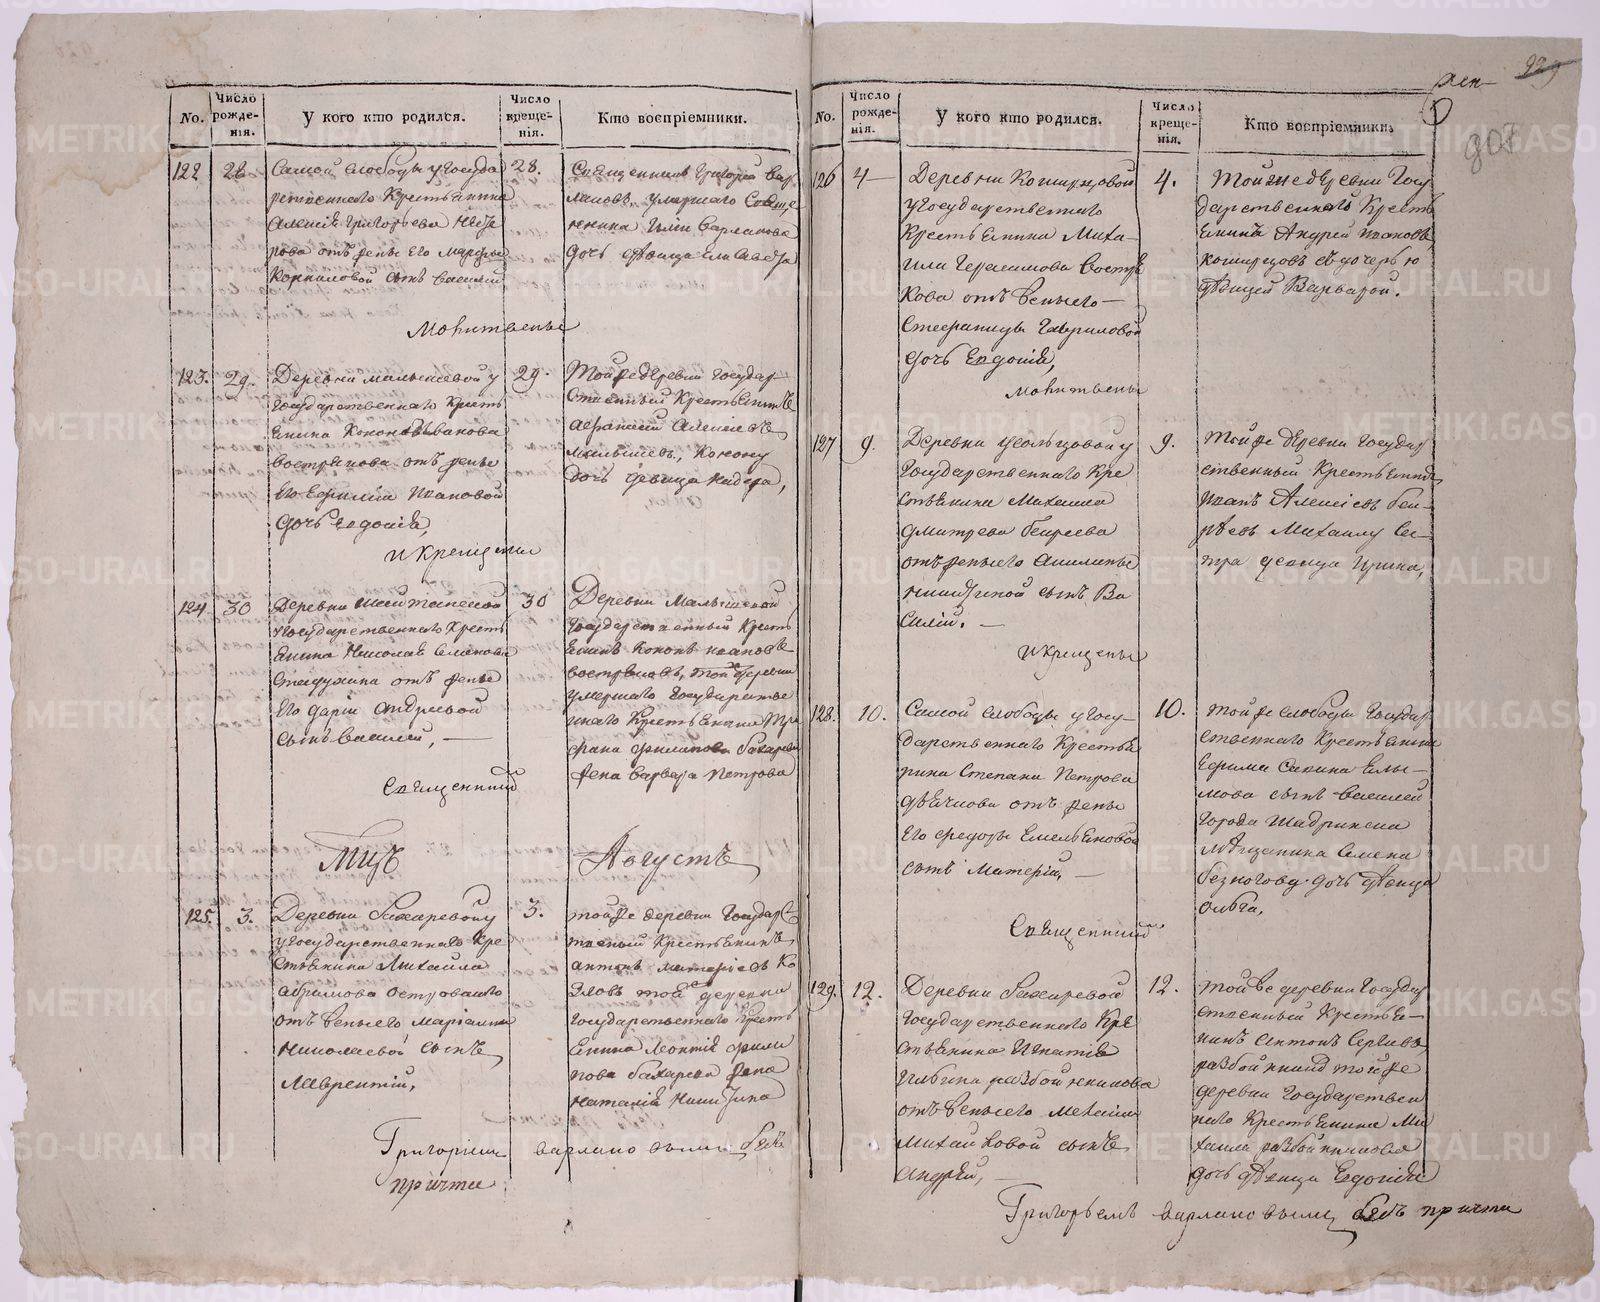 No.
Число рожде-нія.
У кого кто родился.
Число креще-нія.
Кто воспріемники.
122
28
Самой слободы у Госуда
рственнаго Крестьянина
Алексія Григорьева
рова отъ жены Его Марфы
Корниловой сынъ Василій
28.
Священникъ Григорій Вар
лаковъ, умершаго Свяще
нника Иліи Варлакова
дочь девица Елисавета
Молитвенье
123.
29.
Деревни Малышевой у
Государственнаго Кресть
янина Конона Иванова
Вострякова отъ жены
Его Ефиміи Ивановой
дочь Евдокія,
29.
Той же деревни Государ
ственный Крестьянинъ
Афанасій Алексіевъ
Малышевъ, Конону
дочь девица
и крещены
124.
30
Деревни
Государственнаго Кресть
янина Николая
Стадухина отъ жены
Его Даріи Андреевой
сынъ Василей,
30
Деревни Малышевой
Государственный Кресть
янинъ Кононъ Иванов
Востряковъ, той деревни
умершаго Государстве
ннаго Крестьянина Тро
фима Филипова Бахарева
жена Варвара Петрова
Священникій
Мцъ Августъ
125.
3.
Деревни Бахаревой у
у Государственнаго Кре
стьянина Михайла
Абрамова Островскаго
отъ жены его Маріамны
Николаевой сынъ
Лаврентій,
3.
той же деревни Государ
твеный Крестьянинъ
Антонъ Ко
зловъ той деревни
Государственнаго Кресть
янина Леонтія Фили
пова Бахарева жена
Наталія Никитина
Григоріемъ Варлаковымъ безъ
причта
929
907
No.
Число рожде-нія.
У кого кто родился.
Число креще-нія.
Кто воспріемники.
126
4
Деревни Кошкуровой
у Государственнаго
Крестьянина Миха
ила Герасимова Востря
кова отъ жены его
Стефаниды Гавриловой
дочь Евдокія,
4.
Той же деревни Госу
дарственнаго Кресть
янинъ Андрей Ивановъ
съ дочерью
дѣвицей Варварой.
Молитвены
127
9.
Деревни Усольцовой у
Государственнаго Кре
стьянина Михаила
Дмитрева
отъ жены его
Никитиной сынъ Ва
силій.
9.
той же деревни Государ
ственный Крестьянинъ
Иванъ Алексіевъ
Михаилу Се
стра девица Ирина,
и крещены
128.
10.
Самой слободы у Госу
дарственнаго Крестья
нина Степана Петрова
Дьячкова отъ жены
Его Федоры Емельяновой
сынъ
10.
той же слободы Государ
ственнаго Крестьянина
Ефима Савина
сынъ Василей
города Шадринска
мѣщанина Семена
дочь дѣвица
Ольга.
Священникій
129.
12.
Деревни Бахаревой
Государственнаго Кре
стьянина Игнатія
Разбойникова
отъ жены его
Михайловой сынъ
Андрей,
12.
той же деревни Государ
ственный Крестья
нинъ Антонъ Сергіевъ
Разбойниковъ той же
деревни Государствен
наго Крестьянина Ми
хаила Разбойникова
дочь дѣвица Евдокія
Григорьемъ Варлаковымъ безъ причта